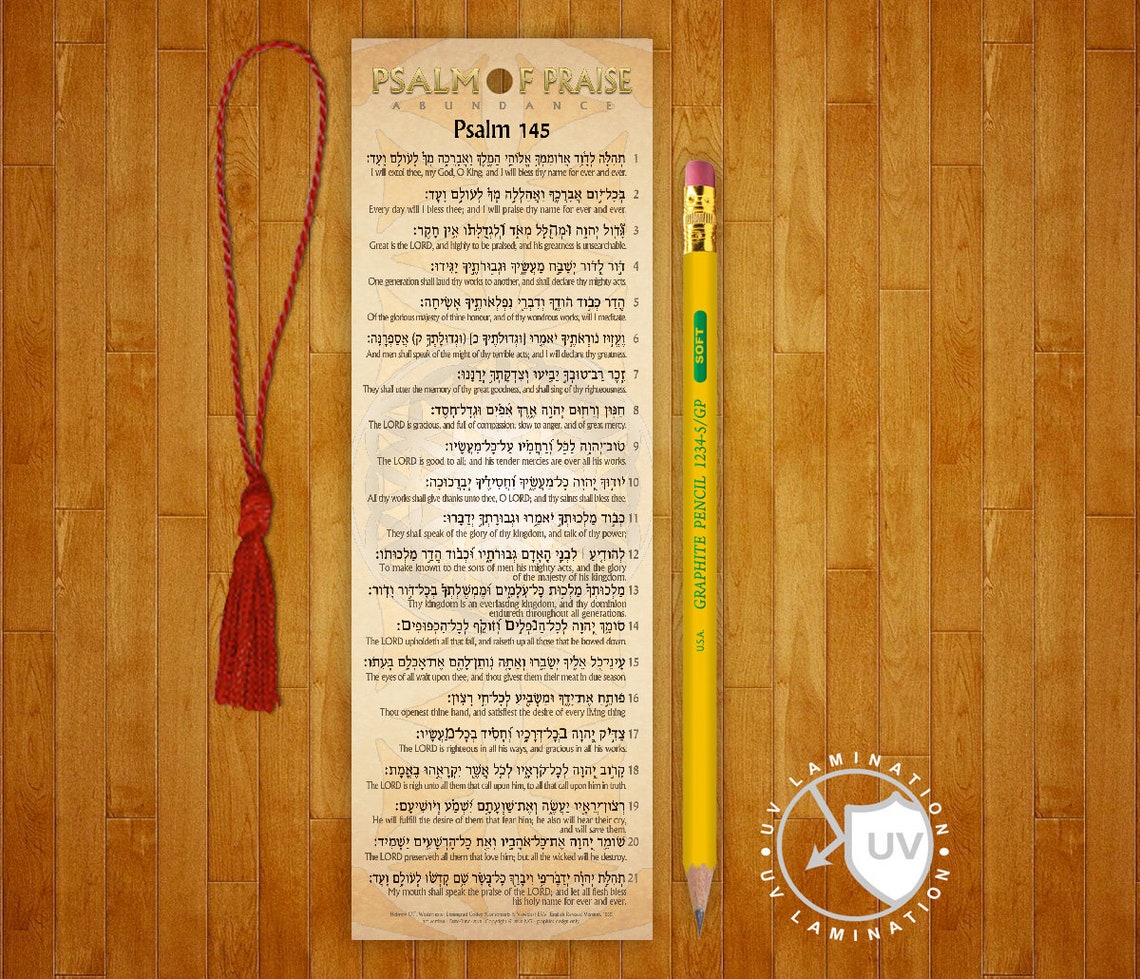 PSALM OF PRAISE
ABUNDANCE
Psalm 145
תְּהִלָּה לְדָוִד אֲרוֹמִמְךָ אֱלוֹהַי הַמֶּלֶךְ וַאֲבָרְכָה שִׁמְךָ לְעוֹלָם וָעֶד׃ 1
I will extol thee, my God, O King; and I will bless thy name for ever and ever.
בְּכָל־יוֹם אֲבָרְכֶךָּ וַאֲהַלְלָה שִׁמְךָ לְעוֹלָם וָעֶד׃ 2
Every day will I bless thee; and I will praise thy name for ever and ever.
גָּדוֹל יְהוָה וּמְהֻלָּל מְאֹד וְלִגְדֻלָּתוֹ אֵין חֵקֶר׃ 3
Great is the LORD, and highly to be praised; and his greatness is unsearchable.
דּוֹר לְדוֹר יְשַׁבַּח מַעֲשֶׂיךָ וּגְבוּרֹתֶיךָ יַגִּידוּ׃ 4
One generation shall laud thy works to another, and shall declare thy mighty acts.
הֲדַר כְּבוֹד הוֹדֶךָ וְדִבְרֵי נִפְלְאוֹתֶיךָ אָשִׂיחָה׃ 5
Of the glorious majesty of thine honour, and of thy wondrous works, will I meditate.
וֶעֱזוּז נוֹרְאֹתֶיךָ יֹאמֵרוּ [וּגְדוּלֹּתֶיךָ כ] (וּגְדוּלָּתְךָ ק) אֲסַפְּרֶנָּה׃ 6
And men shall speak of the might of thy terrible acts; and I will declare thy greatness.
זֵכֶר רַב־טוּבְךָ יַבִּיעוּ וְצִדְקָתְךָ יְרַנֵּנוּ׃ 7
They shall utter the memory of thy great goodness, and shall sing of thy righteousness.
חַנּוּן וְרַחוּם יְהוָה אֶרֶךְ אַפַּיִם וּגְדָל־חָסֶד׃ 8
The LORD is gracious, and full of compassion; slow to anger, and of great mercy.
טוֹב־יְהוָה לַכֹּל וְרַחֲמָיו עַל־כָּל־מַעֲשָׂיו׃ 9
The LORD is good to all; and his tender mercies are over all his works.
יוֹדוּךָ יְהוָה כָּל־מַעֲשֶׂיךָ וַחֲסִידֶיךָ יְבָרֲכוּכָה׃ 10
All thy works shall give thanks unto thee, O LORD; and thy saints shall bless thee.
כְּבוֹד מַלְכוּתְךָ יֹאמֵרוּ וּגְבוּרָתְךָ יְדַבֵּרוּ׃ 11
They shall speak of the glory of thy kingdom, and talk of thy power;
לְהוֹדִיעַ ׀ לִבְנֵי הָאָדָם גְּבוּרֹתָיו וּכְבוֹד הֲדַר מַלְכוּתוֹ׃ 12
To make known to the sons of men his mighty acts, and the glory
of the majesty of his kingdom.
מַלְכוּתְךָ מַלְכוּת כָּל־עֹלָמִים וּמֶמְשֶׁלְתְּךָ בְּכָל־דּוֹר וָדוֹר׃ 13
Thy kingdom is an everlasting kingdom, and thy dominion
endureth throughout all generations.
סוֹמֵךְ יְהוָה לְכָל־הַנֹּפְלִים וְזוֹקֵף לְכָל־הַכְּפוּפִים׃ 14
The LORD upholdeth all that fall, and raiseth up all those that be bowed down.
עֵינֵי־כֹל אֵלֶיךָ יְשַׂבֵּרוּ וְאַתָּה נוֹתֵן־לָהֶם אֶת־אָכְלָם בְּעִתּוֹ׃ 15
The eyes of all wait upon thee; and thou givest them their meat in due season.
פּוֹתֵחַ אֶת־יָדֶךָ וּמַשְׂבִּיעַ לְכָל־חַי רָצוֹן׃ 16
Thou openest thine hand, and satisfiest the desire of every living thing
צַדִּיק יְהוָה בְּכָל־דְּרָכָיו וְחָסִיד בְּכָל־מַעֲשָׂיו׃ 17
The LORD is righteous in all his ways, and gracious in all his works.
קָרוֹב יְהוָה לְכָל־קֹרְאָיו לְכֹל אֲשֶׁר יִקְרָאֻהוּ בֶאֱמֶת׃ 18
The LORD is nigh unto all them that call upon him, to all that call upon him in truth.
רְצוֹן־יְרֵאָיו יַעֲשֶׂה וְאֶת־שַׁוְעָתָם יִשְׁמַע וְיוֹשִׁיעֵם׃ 19
He will fulfill the desire of them that fear him; he also will hear their cry,
and will save them.
שׁוֹמֵר יְהוָה אֶת־כָּל־אֹהֲבָיו וְאֵת כָּל־הָרְשָׁעִים יַשְׁמִיד׃ 20
The LORD preserveth all them that love him; but all the wicked will he destroy.
תְּהִלַּת יְהוָה יְדַבֶּר־פִּי וִיבָרֵךְ כָּל־בָּשָׂר שֵׁם קָדְשׁוֹ לְעוֹלָם וָעֶד׃ 21
My mouth shall speak the praise of the LORD; and let all flesh bless
his holy name for ever and ever.
SOFT
GRAPHITE PENCIL 1234-5/GP
U.S.A.
UV LAMINATION
UV
UV LAMINATION